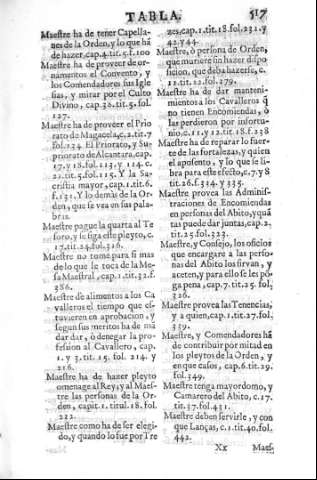 TABLA. 517
Maestre ha de tener Capella-
nes de la Orden, y lo que hã
de hazer, cap.4.tit.5.f.100
Maestre ha de proveer de or-
namentos el Convento, y
los Comendadores sus Igle
sias, y mirar por el Culto
Divino, cap.30.tit.5. fol.
127.
Maestre ha de proveer el Prio
rato de Magacela, c.2.tit.7
fol.134. El Priorato, y Su-
priorato de Alcantara, cap.
17.y 18.fol.113.y 114. c.
22.tit.5.fol.115. Y la Sa-
cristia mayor, cap.1.tit.6.
f.131. Y lo demàs de la Or-
den, que se vea en sus pala-
bras.
Maestre pague la quarta al Te
soro, y se siga este pleyto, c.
17.tit.24.fol.316.
Maestre no tome para si mas
de lo que le toca de la Me-
sa Maestral, cap.1.tit.32.f.
386.
Maestre dè alimentos a los Ca
valleros el tiempo que es-
tuvieren en aprobacion, y
segun sus meritos ha de mã
dar dar, ò denegar la pro-
fesion al Cavallero, cap.
1. y 3.tit.15. fol. 214. y
216.
Maestre ha de hazer pleyto
omenage al Rey, y al Maes-
tre las personas de la Or-
den, capit.1.titul.18.fol.
222.
Maestre como ha de ser elegi-
do, y quando lo fue por Tre
zes, cap.1.tit.18.fol.231.y
42.y 44.
Maestre, ò persona de Orden,
que muriere sin hazer dispo
sicion, que deba hazerse, c.
12.tit.20.fol.279.
Maestre ha de dar manteni-
mientos a los Cavalleros q̃
no tienen Encomiendas, ò
las perdieron por infortu-
nio, c.11.y 12.tit.18.f.238
Maestre ha de reparar lo fuer-
te de las fortalezas, y quien
el aposento, y lo que se li-
bra para este efecto, c.7.y 8
tit.26.f.324.y 335.
Maestre provea las Adminis-
traciones de Encomiendas
en personas del Abito, y quã
tas puede dar juntas, cap.2.
tit.25.fol.323.
Maestre, y Consejo, los oficios
que encargare a las perso-
nas del Abito los sirvan, y
aceten, y para ello se les pō
ga pena, cap.7.tit.25. fol.
326.
Maestre provea las Tenencias,
y a quien, cap.1.tit.27.fol.
339.
Maestre, y Comendadores hã
de contribuir por mitad en
los pleytos de la Orden, y
en que casos, cap.6.tit.29.
fol.349.
Maestre tenga mayordomo, y
Camarero del Abito, c.17.
tit.37.fol.431.
Maestre deben servirle, y con
que Lanças, c.1.tit.40.fol.
442.
Xx Maes-